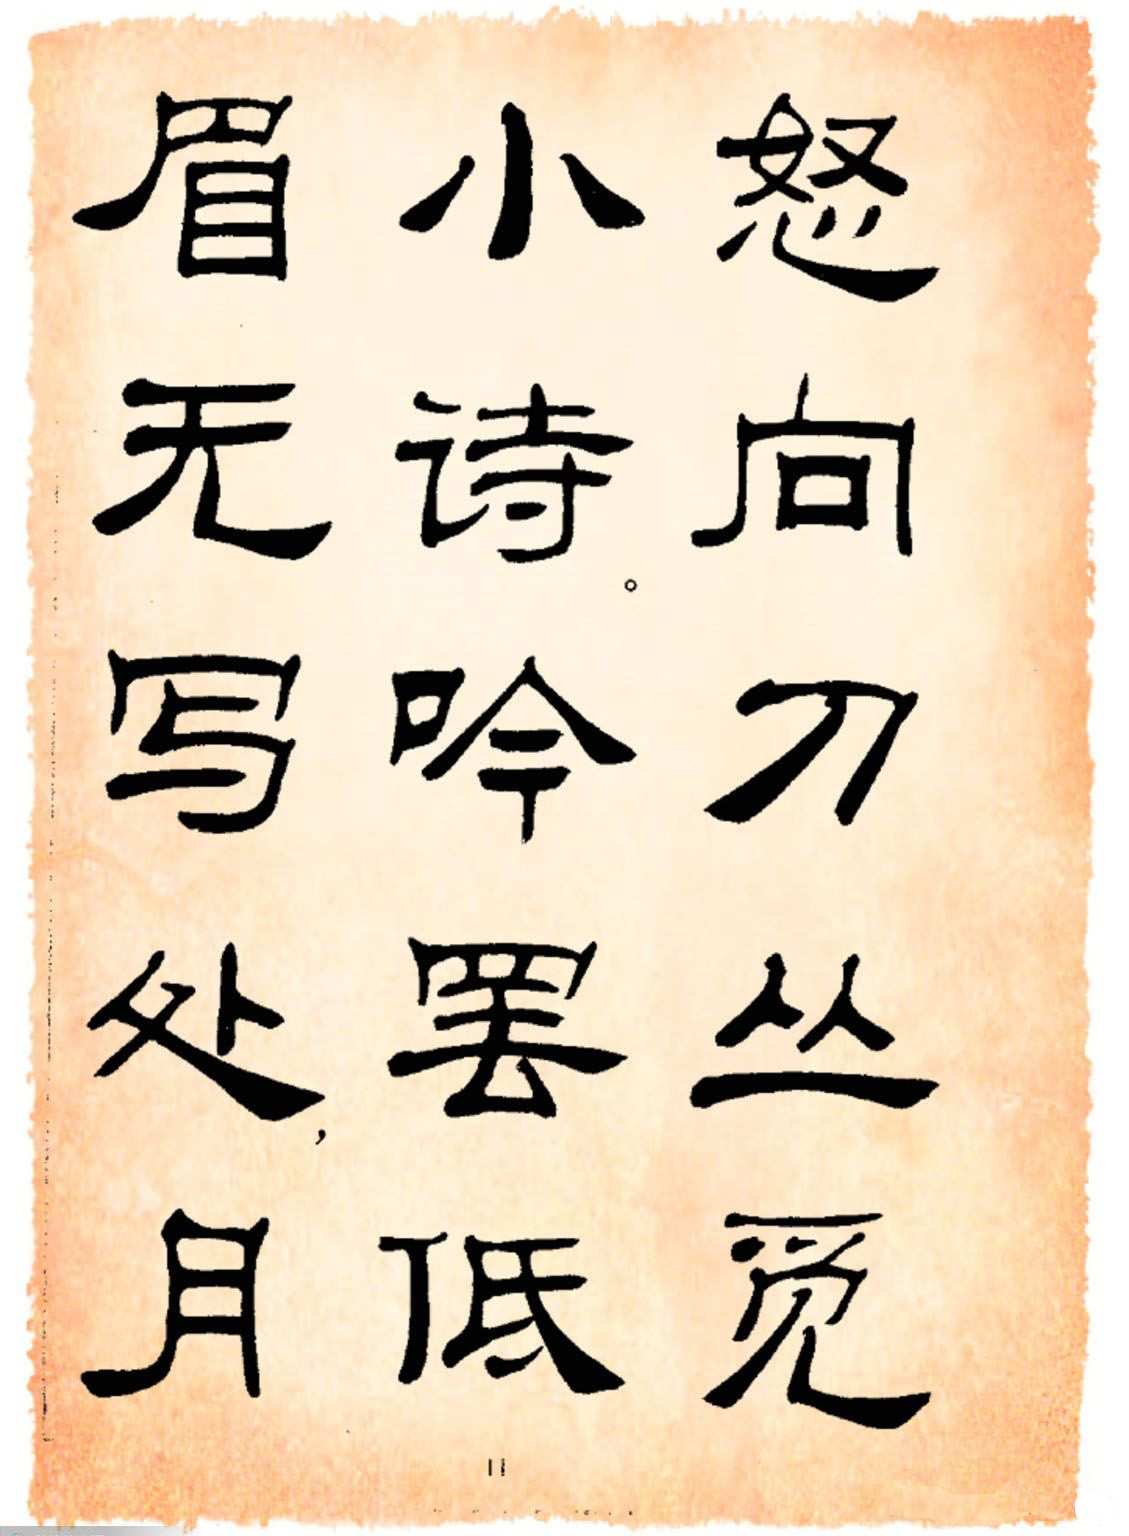 怒向刀丛觅
小诗。吟罢低
眉无写处，月
11